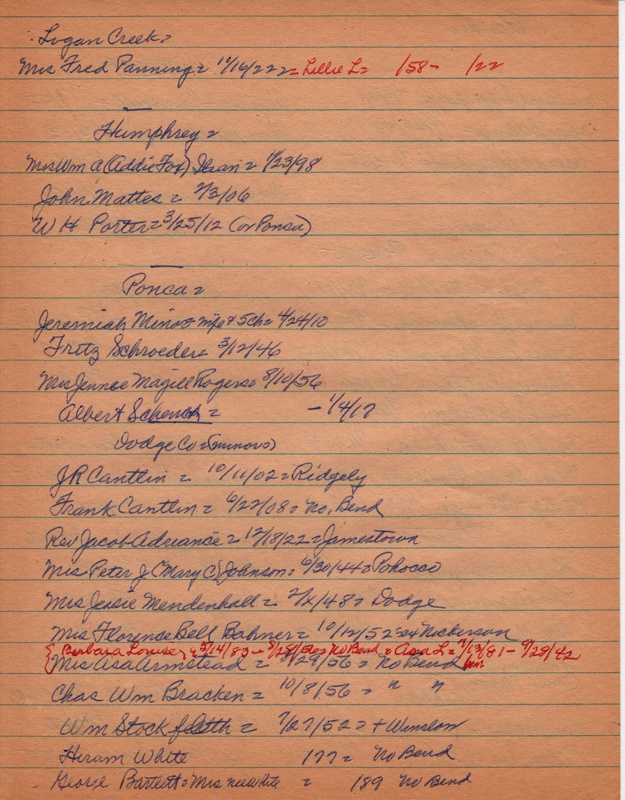 Logan Creek =
Mrs Fred Panning = 12/16/22 = Lillie L = /58 - /22
Humphrey =
Mrs Wm A (Addie Fox) = 1/23/98
John Mattes = 2/3/06
W H Porter = 3/25/12 (or Ponca)
Ponca =
Jeremiah Minor = & Sch = 4/24/10
Fritz Schroeder = 3/12/46
Mrs Jennie Magill Rogers = 8/10/56
Albert Schenck = - 1/4/17
Dodge Co = (minors)
J R Cantlin = 10/11/02 = Ridgely
Frank Cantlin = 6/22/08 = No. Bend
Rev Jacob Adriance = 12/18/22 = Jamestown
Mrs Peter J (Mary C) Johnson = 6/30/44 = Pohocco
Mrs Jessie Mendenhall = 2/2/48 = Dodge
Mrs Florence Bell Bahner = 10/12/52 = Nickerson
{Barbara Louise} = 3/14/83 - 8/28/56 = No Bend = Asa L = 7/13/81 - 9/28/42
Mrs Asa Armstead = 8/29/56 = No Bend
Chas Wm Bracken = 10/8/56 = " "
Wm Stock = 7/27/52 = + Winslow
Hiram White 177 = No Bend
George Bartlett = Mrs nee White = 189 No Bend